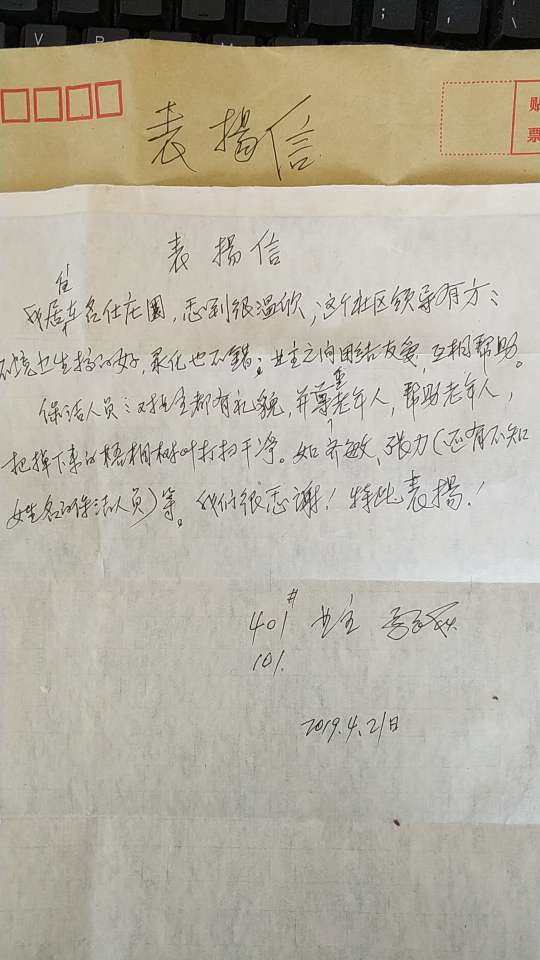 V
B
贴
票
表揚信
表揚信
我居住在名仕庄園,感到很温欣,这个社区领导有方;
环境卫生搞的好,绿化也不错;业主之间团结友爱,互相帮助。
保洁人员:对业主都有礼貌,并尊重老年人,帮助老年人,
把掉下来的梧桐树叶打扫干净。如齐敏、張力(还有不知
姓名的保洁人员)等。我们很感谢!特此表揚!
401# 业主
101.
2019.4.21日